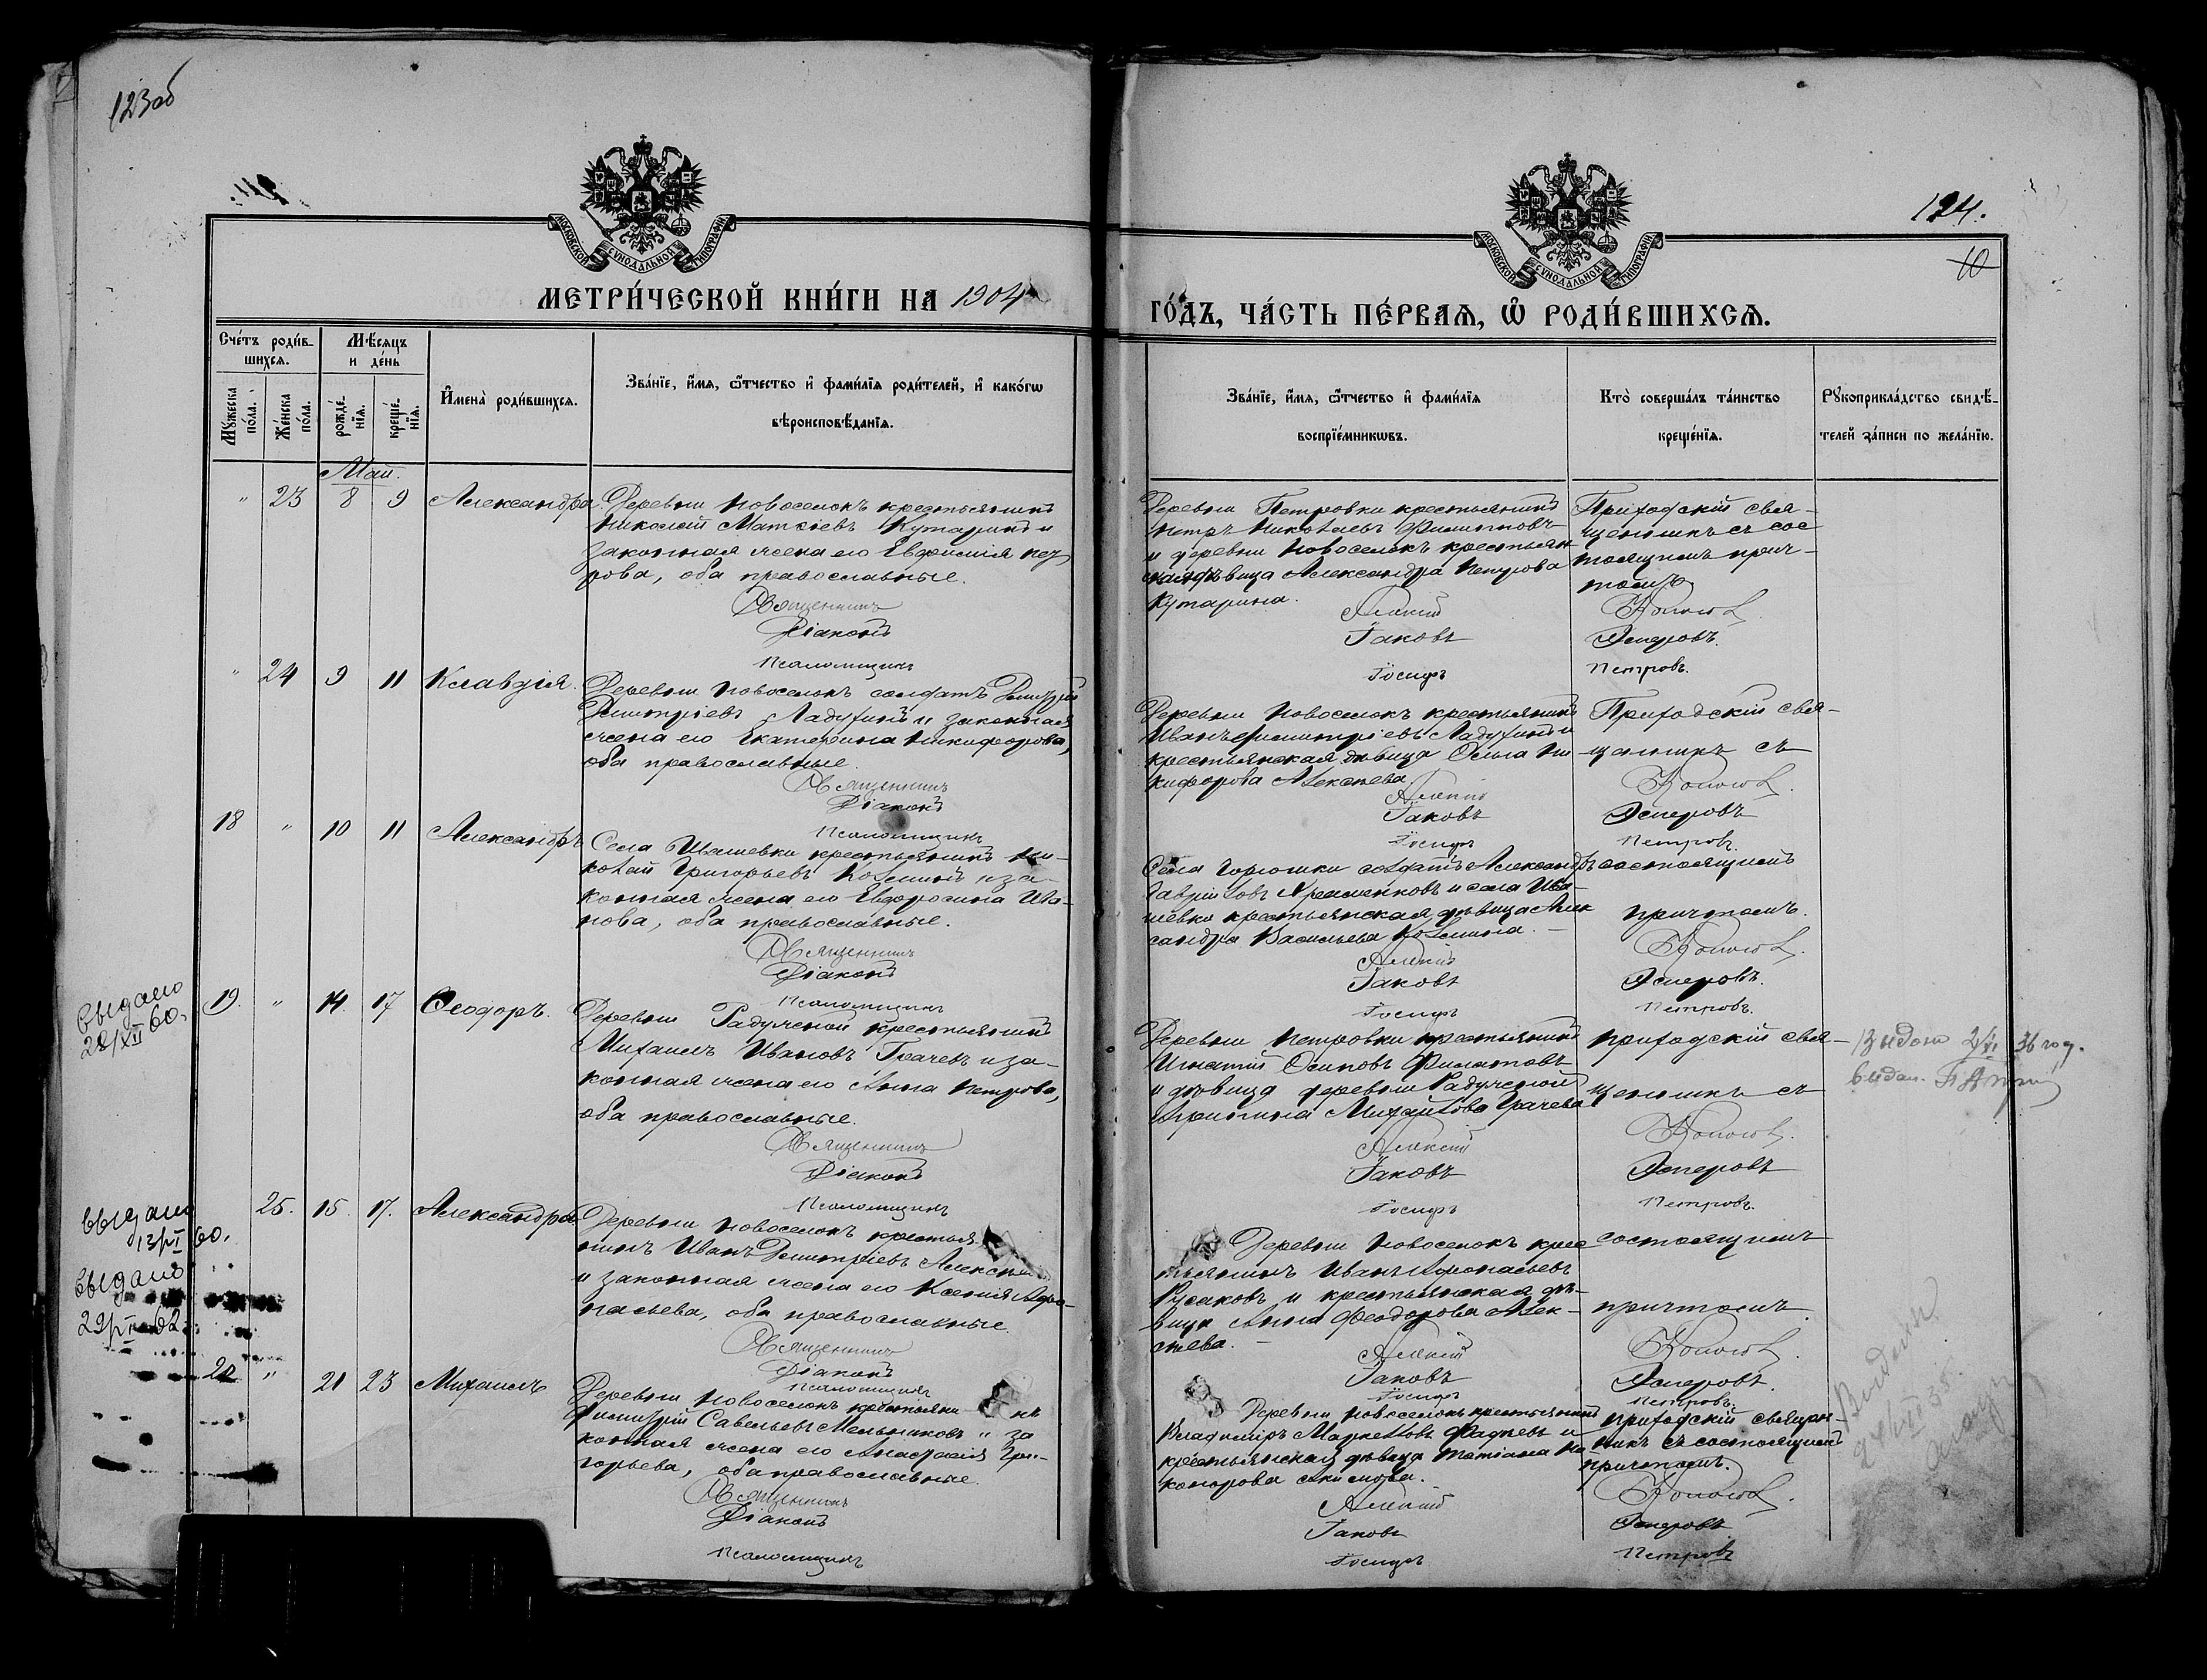 123об
124.
10
МОСКОВСКОЙ СѴНОДАЛЬНОЙ ТИПОГРАФІИ
МОСКОВСКОЙ СѴНОДАЛЬНОЙ ТИПОГРАФІИ
МЕТРИ́ЧЕСКОЙ КНИ́ГИ НА 1904
ГО́ДЪ, ЧА́СТЬ ПЕ́РВАѦ, Ѡ РОДИ́ВШИХСѦ.
Сче́тъ роди́в-
шихсѧ.
Мꙋ́жеска по́ла.
Же́нска по́ла.
Мѣ́сѧцъ
и де́нь
рожде́нїѧ.
креще́нїѧ.
И҆мена̀ роди́вшихсѧ.
Зва́нїе, и҆́мѧ, ѻ҆́тчество и҆ фами́лїѧ роди́телей, и҆ како́гѡ
вѣроисповѣ́данїѧ.
Зва́нїе, и҆́мѧ, ѻ҆́тчество и҆ фами́лїѧ
воспрїе́мникѡвъ.
Кто̀ соверша́лъ та́инство
креще́нїѧ.
Рꙋкоприкла́дство свидѣ́-
телей за́писи по жела́нїю.
Май.
" 23 8 9 Александра.
Деревни Новоселокъ крестьянинъ
Николай Матвіевъ Кутаринъ и
законная жена его Евфимія Пет
рова, оба православные.
Священникъ
Діаконъ
Псаломщикъ
Деревни Петровки крестьянинъ
Петръ Николаевъ Филипповъ
и деревни Новоселокъ крестьян
ская дѣвица Александра Петрова
Кутарина.
Алексій
Іаковъ
Іосифъ
Приходскій свя-
щенникъ съ сос
тоящимъ прич-
томъ
Эсперовъ.
Петровъ.
" 24 9 11 Клавдія.
Деревни Новоселокъ солдатъ Димитрій
Димитріевъ Ладухинъ и законная
жена его Екатерина Никифорова,
оба православные.
Священникъ
Діаконъ
Псаломщикъ
Деревни Новоселокъ крестьянинъ
Иванъ Димитріевъ Ладухинъ и
крестьянская дѣвица Ольга Ни
кифорова
Алексій
Іаковъ
Іосифъ
Приходскій свя-
щенникъ съ
Эсперовъ
Петровъ.
18 " 10 11 Александръ
Села Ивашевки крестьянинъ Ни-
колай Григорьевъ и за-
конная жена его Евфросина Ива-
нова, оба православные.
Священникъ
Діаконъ
Псаломщикъ
Села солдатъ Александръ
Гавриловъ и села Ива-
шевки крестьянская дѣвица Алек
сандра Васильева
Алексій
Іаковъ
Іосифъ
состоящимъ
причтомъ.
Эсперовъ.
Петровъ.
Выдано
28/XII 60.
19. " 14. 17 Ѳеодоръ.
Деревни крестьянинъ
Михаилъ Ивановъ и за-
конная жена его Анна Петрова,
оба православные.
Священникъ
Діаконъ
Псаломщикъ
Деревни Петровки крестьянинъ
Игнатій Осиповъ Филатовъ
и дѣвица деревни
Михайлова
Алексій
Іаковъ
Іосифъ
приходскій свя-
щенникъ съ
Эсперовъ
Петровъ.
36 год.
выдан.
Выдано
60.
Выдано
25. 15. 17. Александра
Деревни Новоселокъ крестья
нинъ Иванъ Димитріевъ
и законная жена его Ксенія Афа-
насьева, оба православные.
Священникъ
Діаконъ
Псаломщикъ
Деревни Новоселокъ крес
тьянинъ Иванъ Афонасьевъ
Русаковъ и крестьянская дѣ-
вица Анна Феодорова
Алексій
Іаковъ
Іосифъ
состоящимъ
причтомъ.
Эсперовъ.
Петровъ.
" 21 23 Михаилъ
Деревни Новоселокъ крестьяни нъ
Димитрій Савельевъ Мельниковъ и за
конная жена его Анастасія Гри-
горьева, оба православные.
Священникъ
Діаконъ
Псаломщикъ
Деревни Новоселокъ крестьянинъ
Владиміръ и
крестьянская дѣвица Татіана Ни
Алексій
Іаковъ
Іосифъ
приходскій священ-
никъ съ состоящимъ
причтомъ.
Эсперовъ
Петровъ